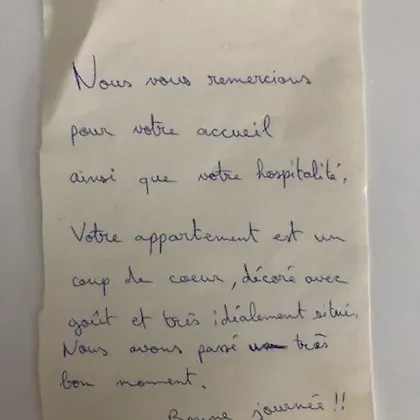 Nous vous remercions
pour votre accueil
ainsi que votre hospitalité.
Votre appartement est un
coup de coeur, décoré avec
goût et très idéalement situé.
Nous avons passé très
bon moment.
Bonne journée !!